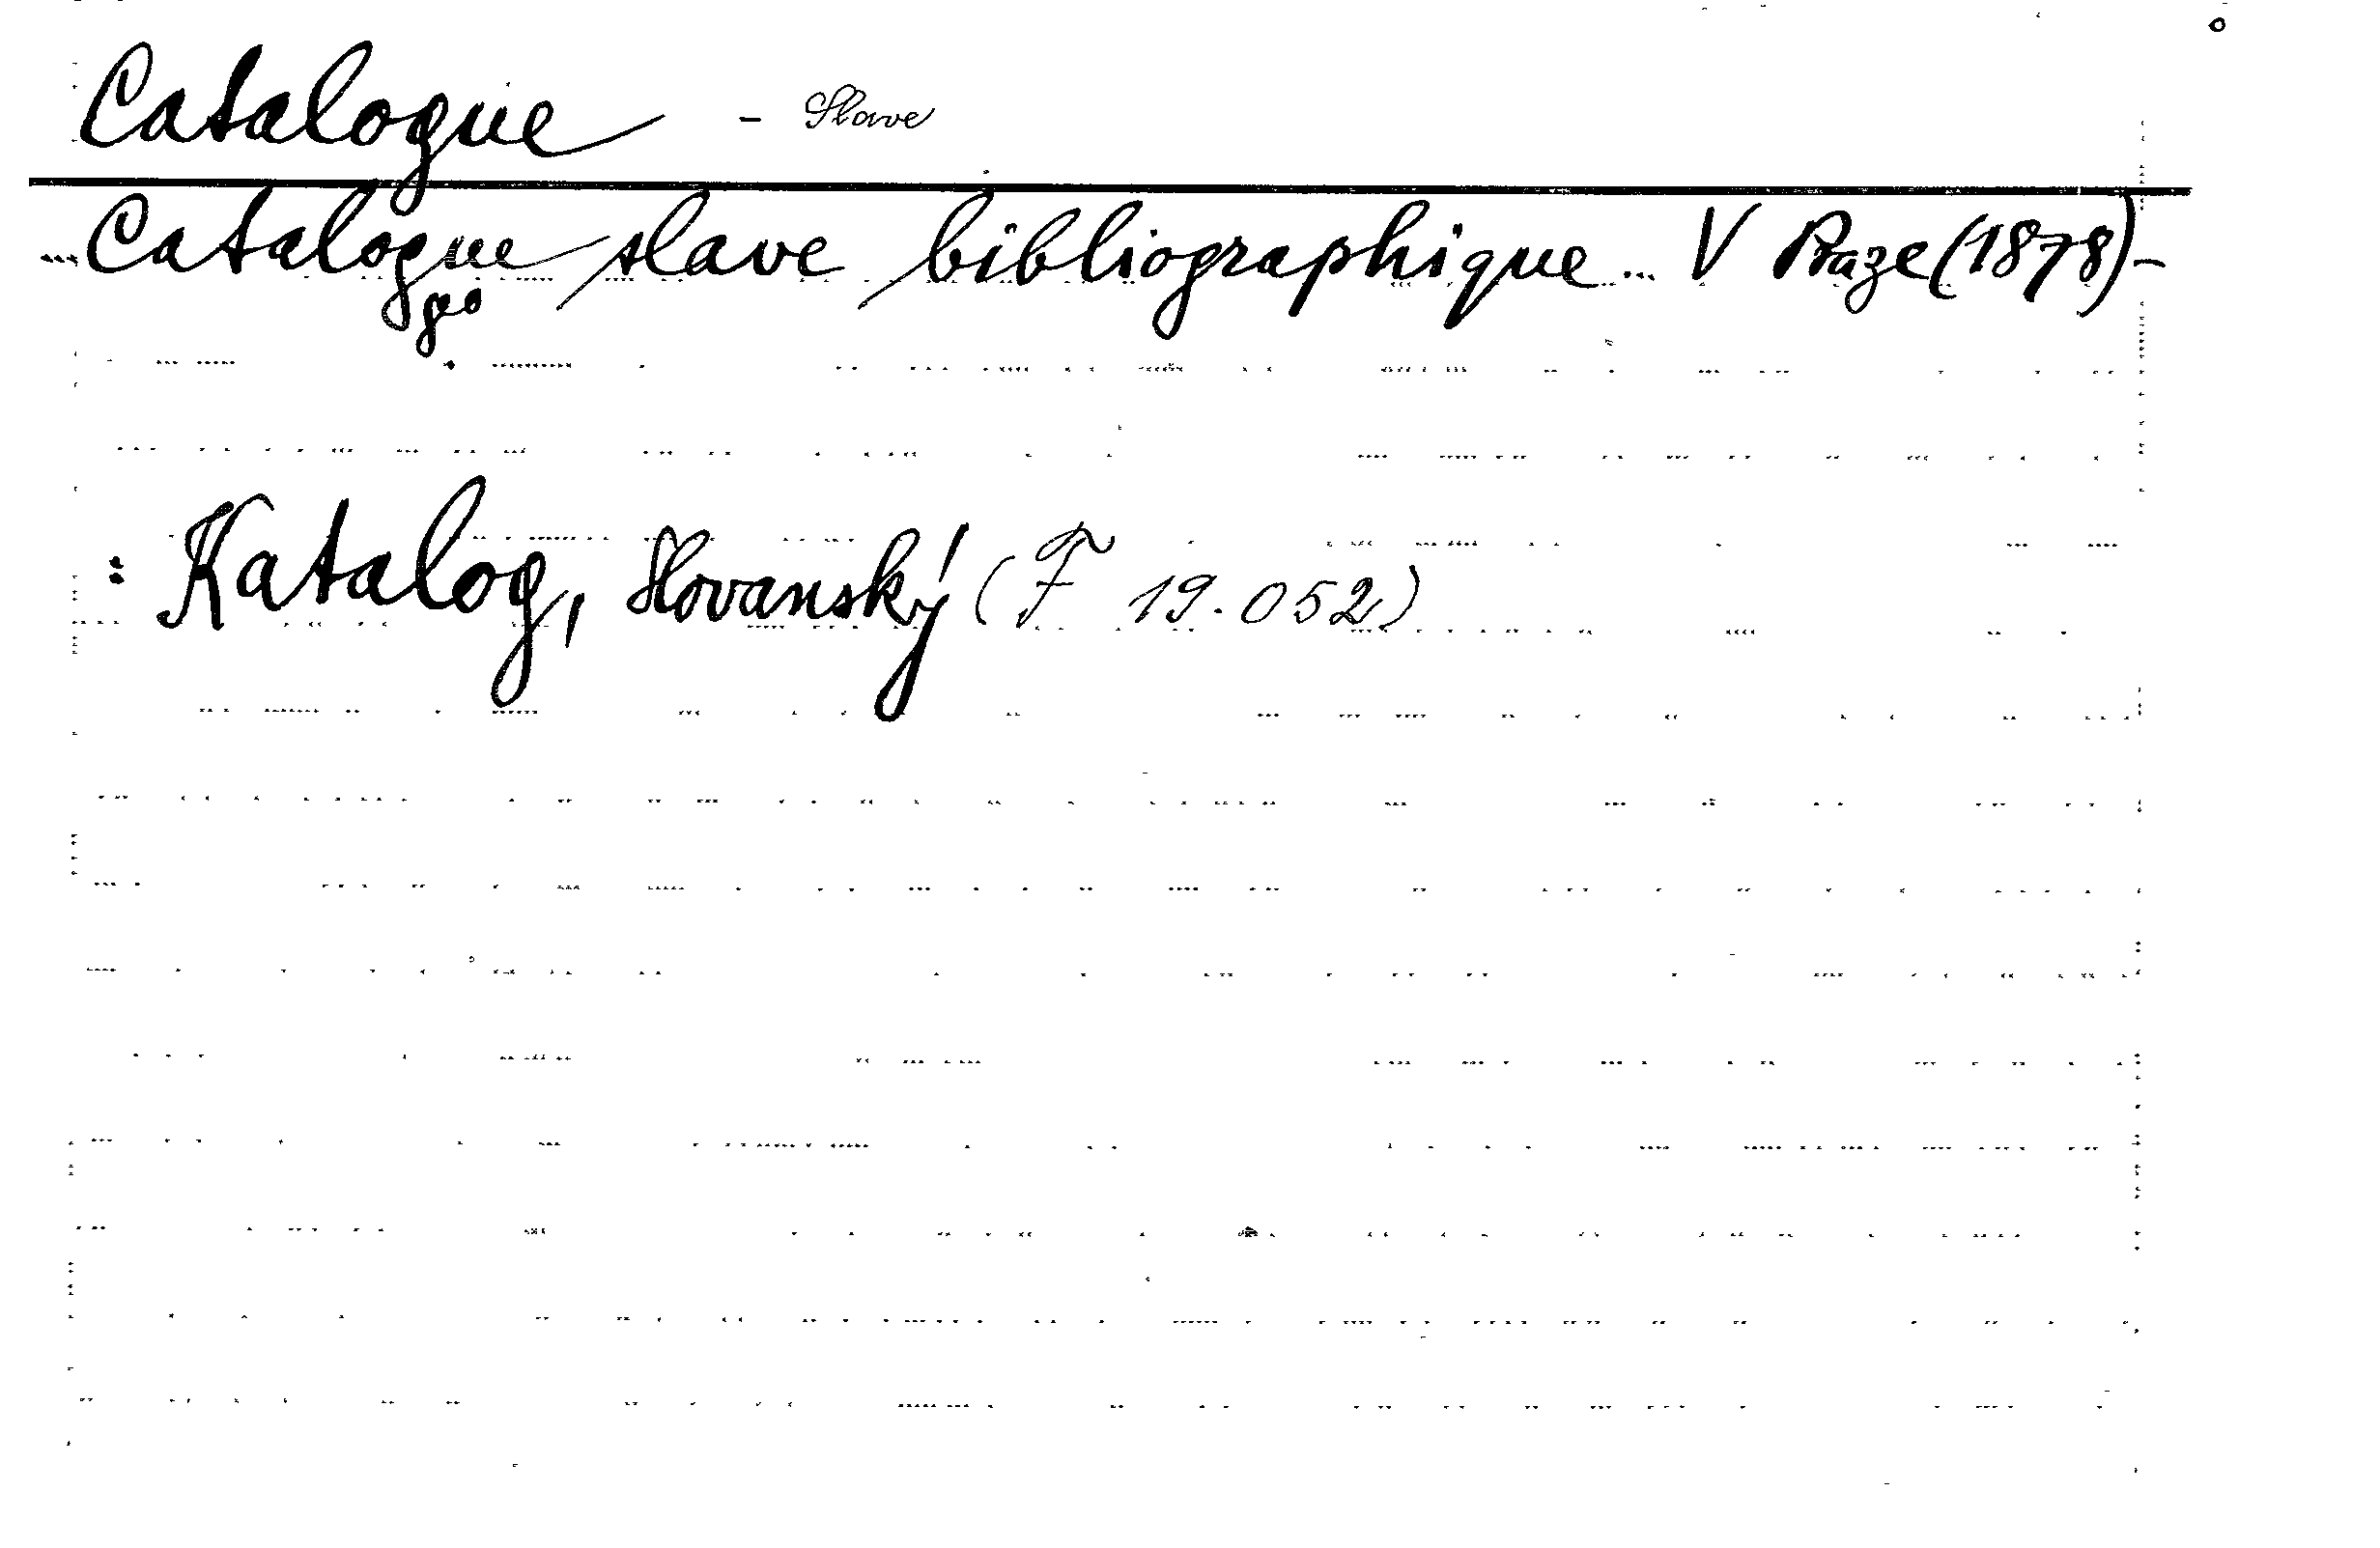 Catalogue - Slave
... Catalogue slave bibliographique ... V Praze (1878)-
: Katalog, Slovanský (F 19.052)